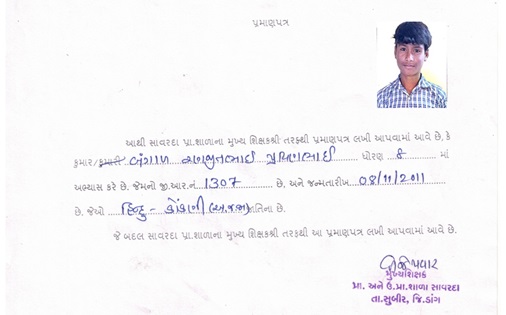 પ્રમાણપત્ર
આથી સાવરદા પ્રા.શાળાના મુખ્ય શિક્ષકશ્રી તરફથી પ્રમાણપત્ર લખી આપવામાં આવે છે. કે
કુમાર/કુમારી બંગાળ પ્રવિણભાઈ ધોરણ 8 માં
અભ્યાસ કરે છે. જેમનો જી.આર.નં 1307 છે. અને જન્મતારીખ 08/11/2011
છે. જેઓ હિન્દુ - કોંકણી (અ.જ.જા) જાતિના છે.
જે બદલ સાવરદા પ્રા.શાળાના મુખ્ય શિક્ષકશ્રી તરફથી આ પ્રમાણપત્ર લખી આપવામાં આવે છે.
પવાર
મુખ્યશિક્ષક
પ્રા. અને ઉ.પ્રા.શાળા સાવરદા
તા.સુબીર, જિ.ડાંગ